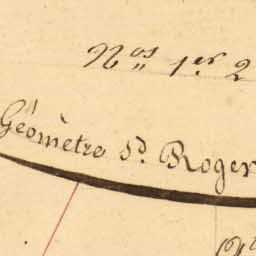 Nos 1er 2
Géomètre Sd. Roger